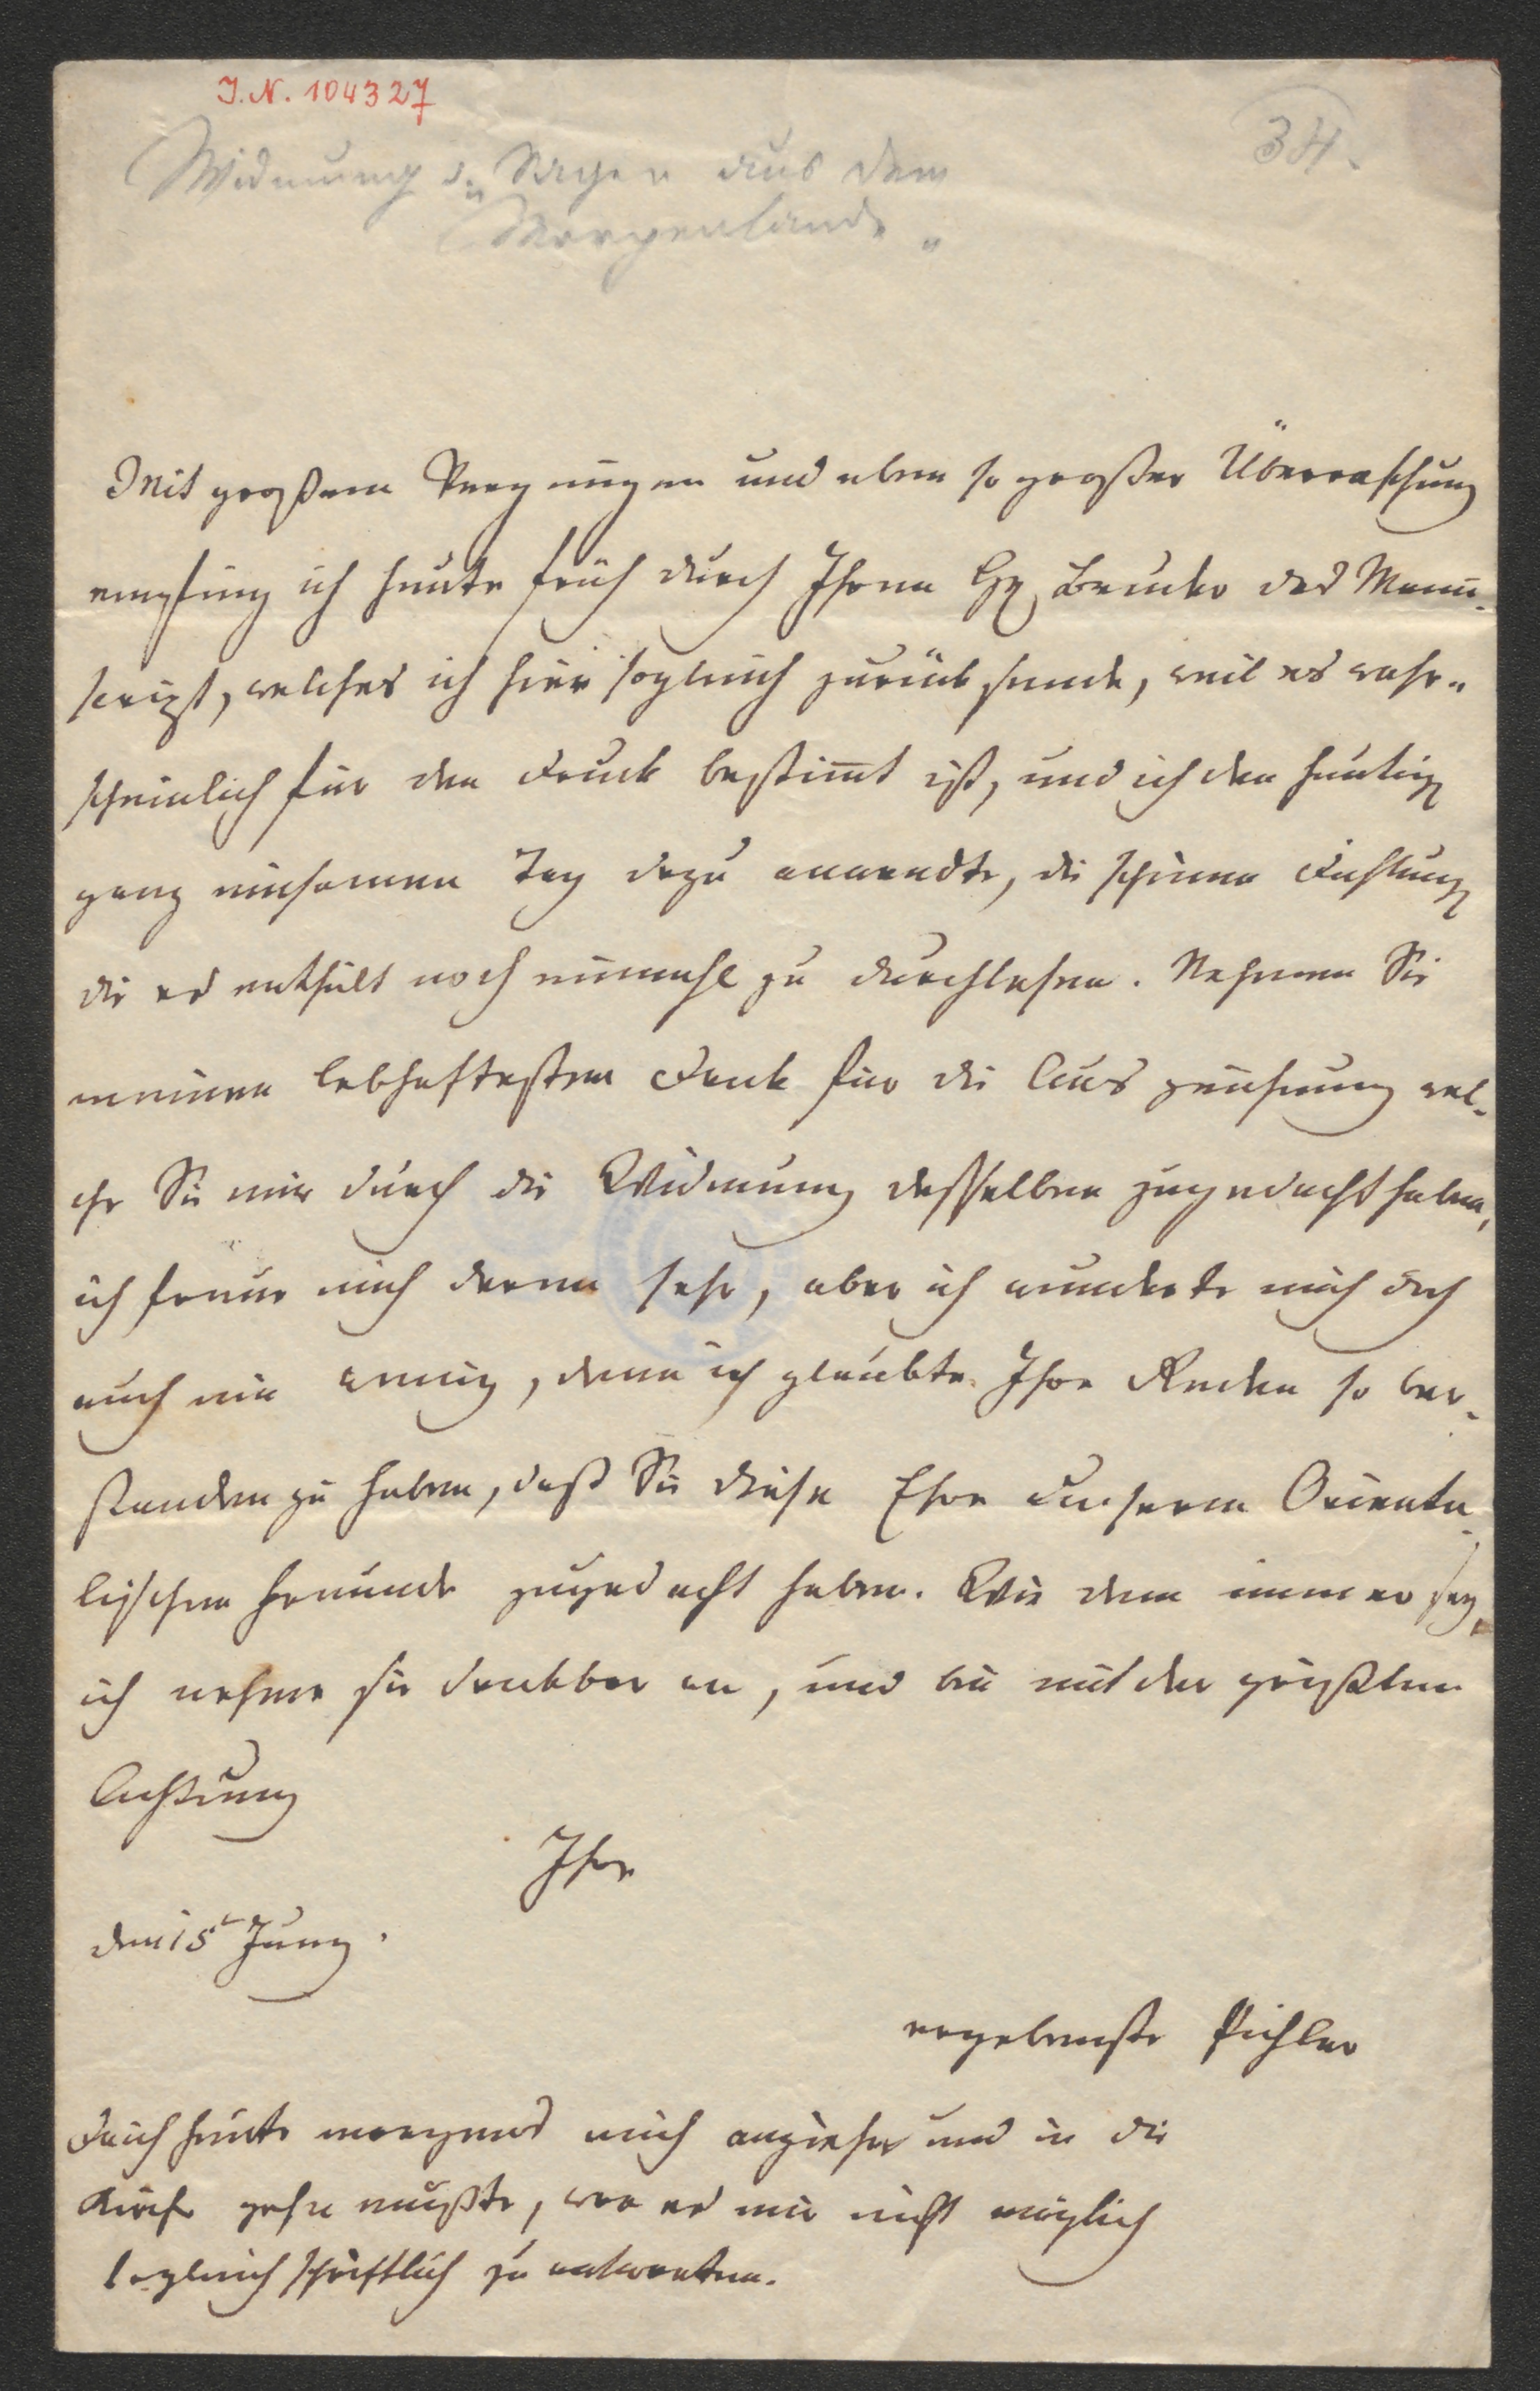 I.N. 104327
34.
Widmung d. „Sagen aus dem
Morgenlande"
Mit großem Vergnügen und eben so großer Überraschung
empfing ich heute früh durch Ihren H Bruder das Manu-
script, welches ich hier sogleich zurück sende, weil es wahr-
scheinlich für den Druck bestimt ist, und ich den heutig
ganz einsamen Tag dazu anwendte, die schönen Dichtung
die es enthält noch einmahl zu durchlesen. Nehmen Sie
meinen lebhaftesten Dank für die Auszeichnung wel-
che Sie mir durch die Widmung desselben zugedacht haben,
ich freue mich deren sehr, aber ich wunderte mich doch
auch ein wenig, denn ich glaubte Ihre Reden so ver-
standen zu haben, daß Sie diese Ehre unserem Orienta-
lischen Freunde zugedacht haben. Wie dem immer sey,
ich nehme sie dankbar an, und bin mit der größten
Achtung
Ihre
den 15t Juny.
ergebenste Pichler
Da ich heute morgens mich anziehen und in die
Kirche gehen mußte, war es mir nicht möglich
sogleich schriftlich zu antworten.